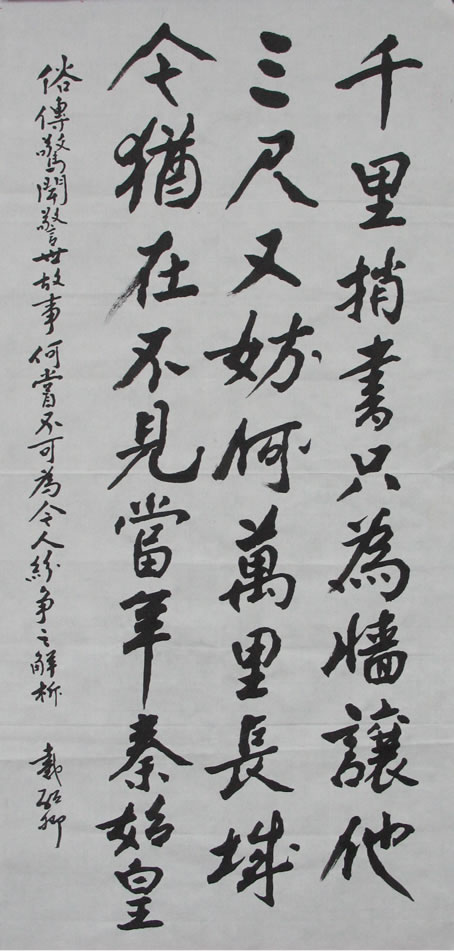 千里捎書只為牆讓他
三尺又妨何萬里長城
今猶在不見當年秦始皇
俗傳驚聞警世故事何嘗不可為今人紛争之解析
戴卿